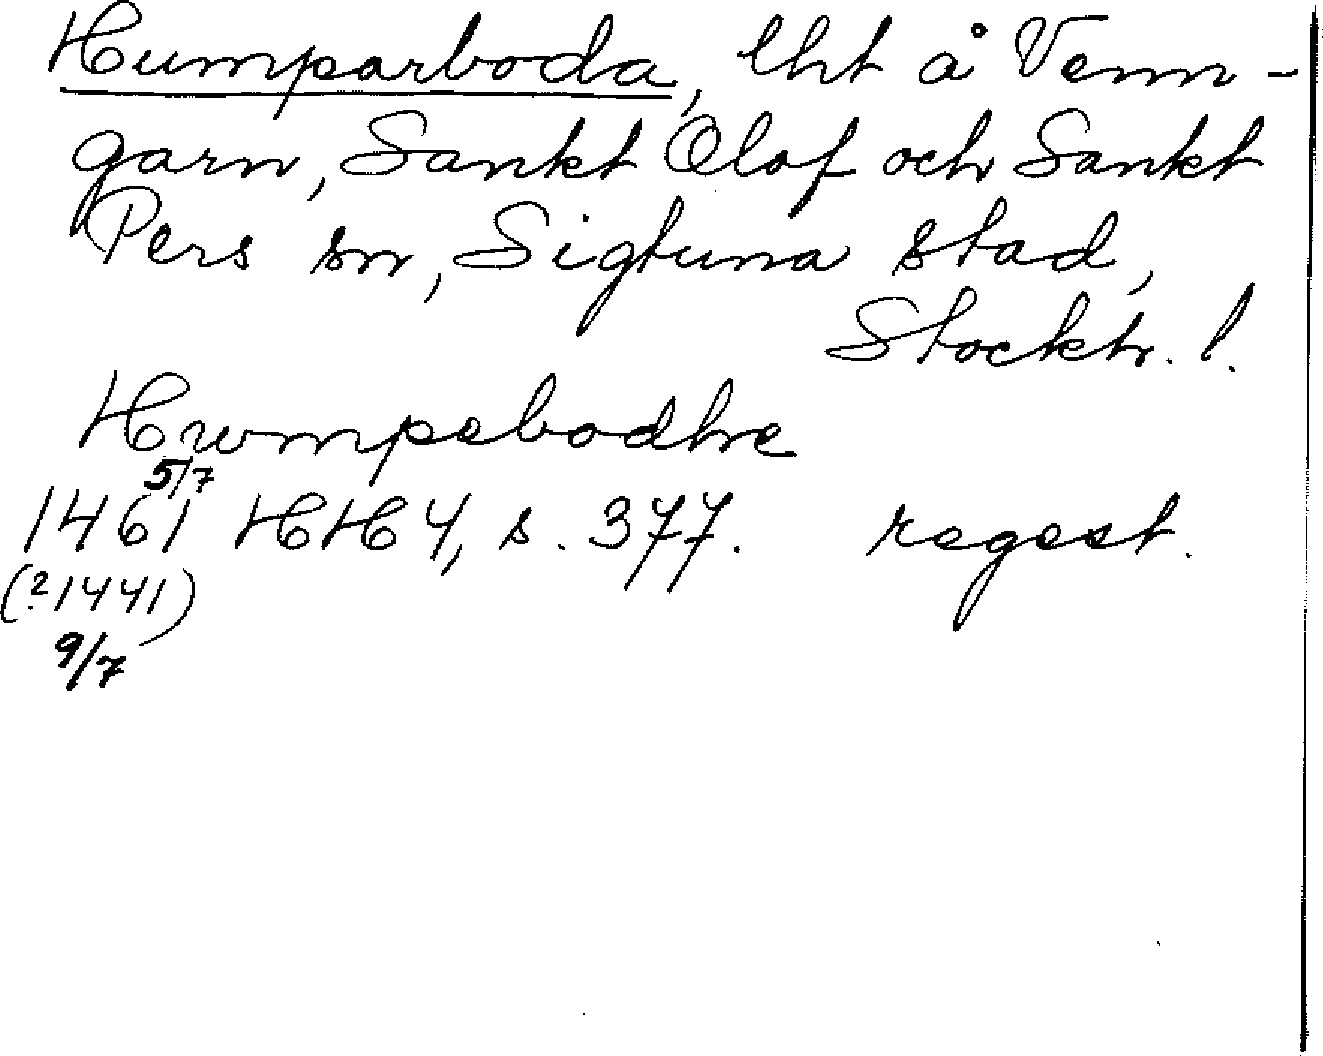 Humparboda, lht å Venn-
garn, Sankt Olof och Sankt
Pers sn, Sigtuna stad,
Stockh. l.
Humpebodhe
5/7
1461 HH 4, s. 377. regest.
(?1441)
9/7